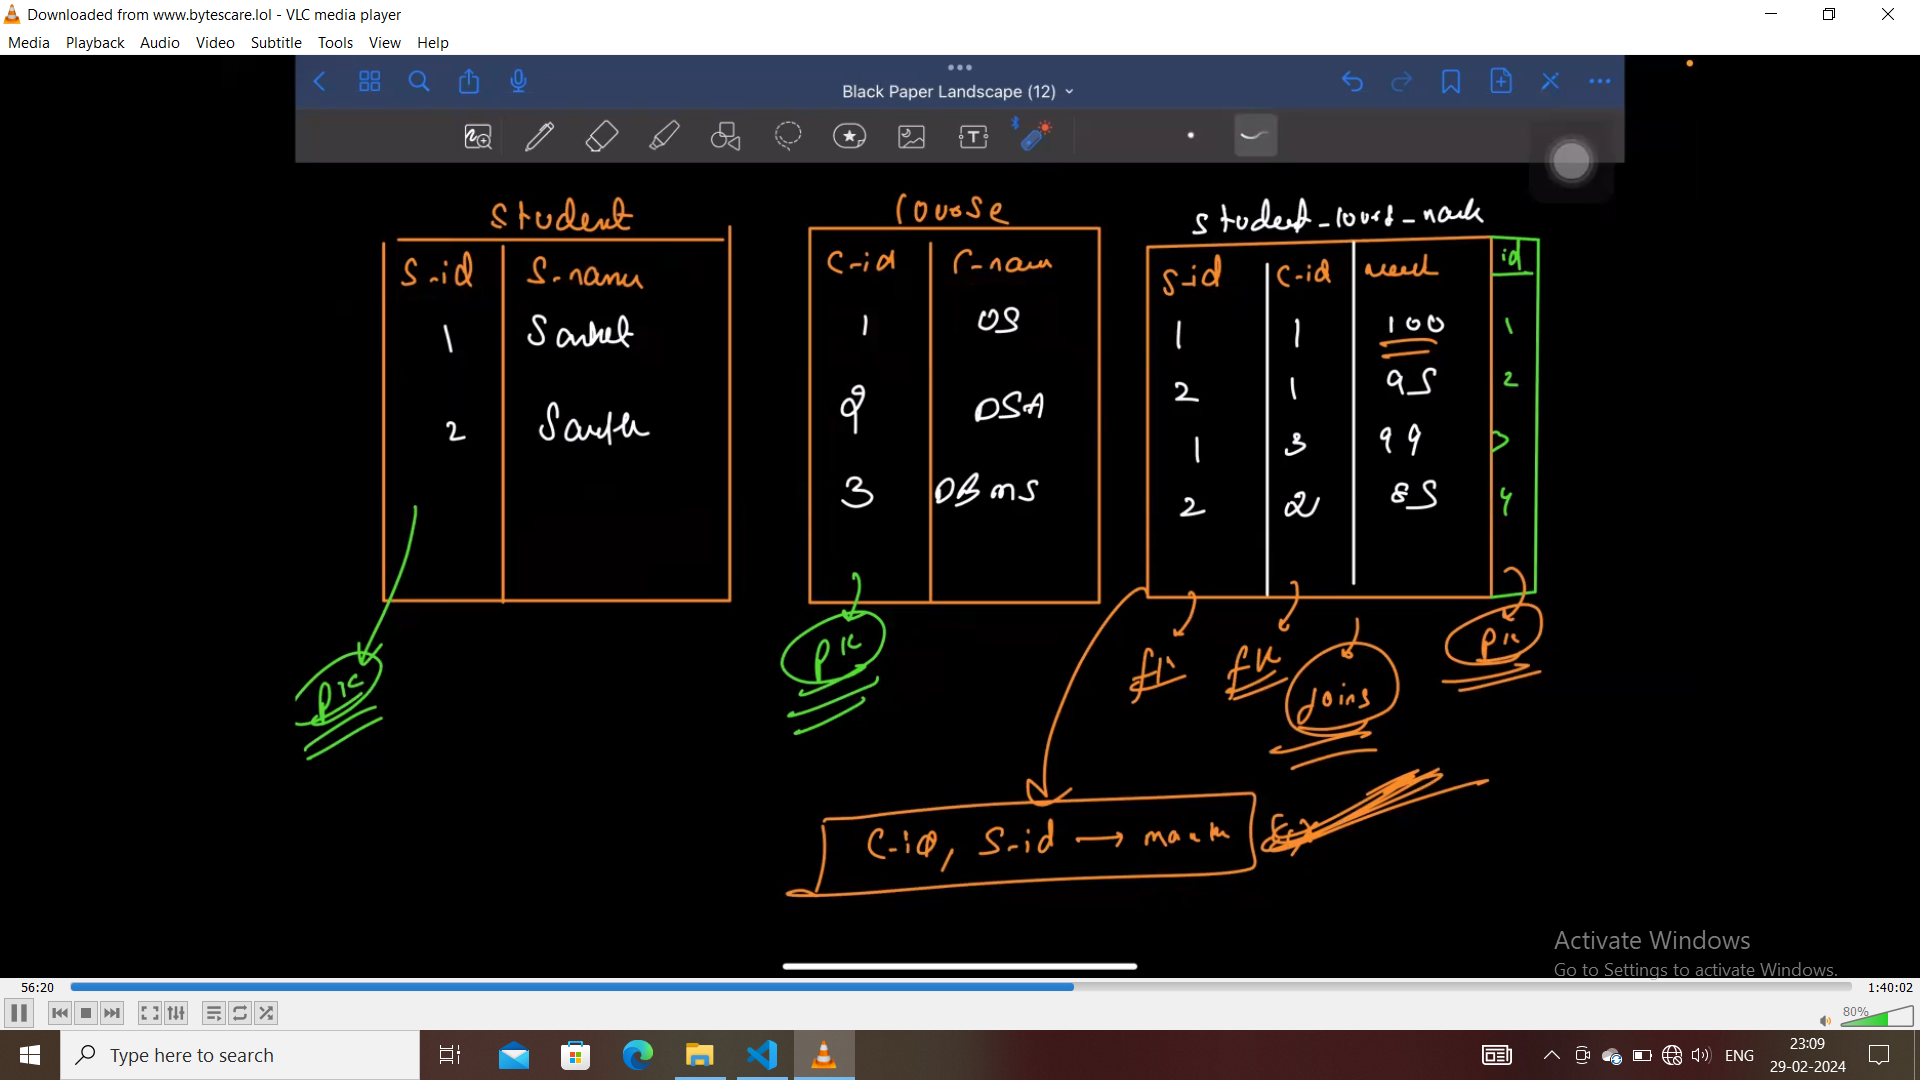 Downloaded from www.bytescare.lol - VLC media player
Media Playback Audio Video Subtitle Tools View Help
Black Paper Landscape (12)
student
S-id S-name
1 Sanket
2 Sarthak
course
C-id C-name
1 OS
2 DSA
3 DBMS
student_course_mark
S-id C-id mark id
1 1 100 1
2 1 95 2
1 3 99 3
2 2 85 4
PK
PK
fk
fk
joins
PK
C-id, S-id → mark
Activate Windows
Go to Settings to activate Windows.
56:20
1:40:02
80%
Type here to search
ENG
23:09
29-02-2024